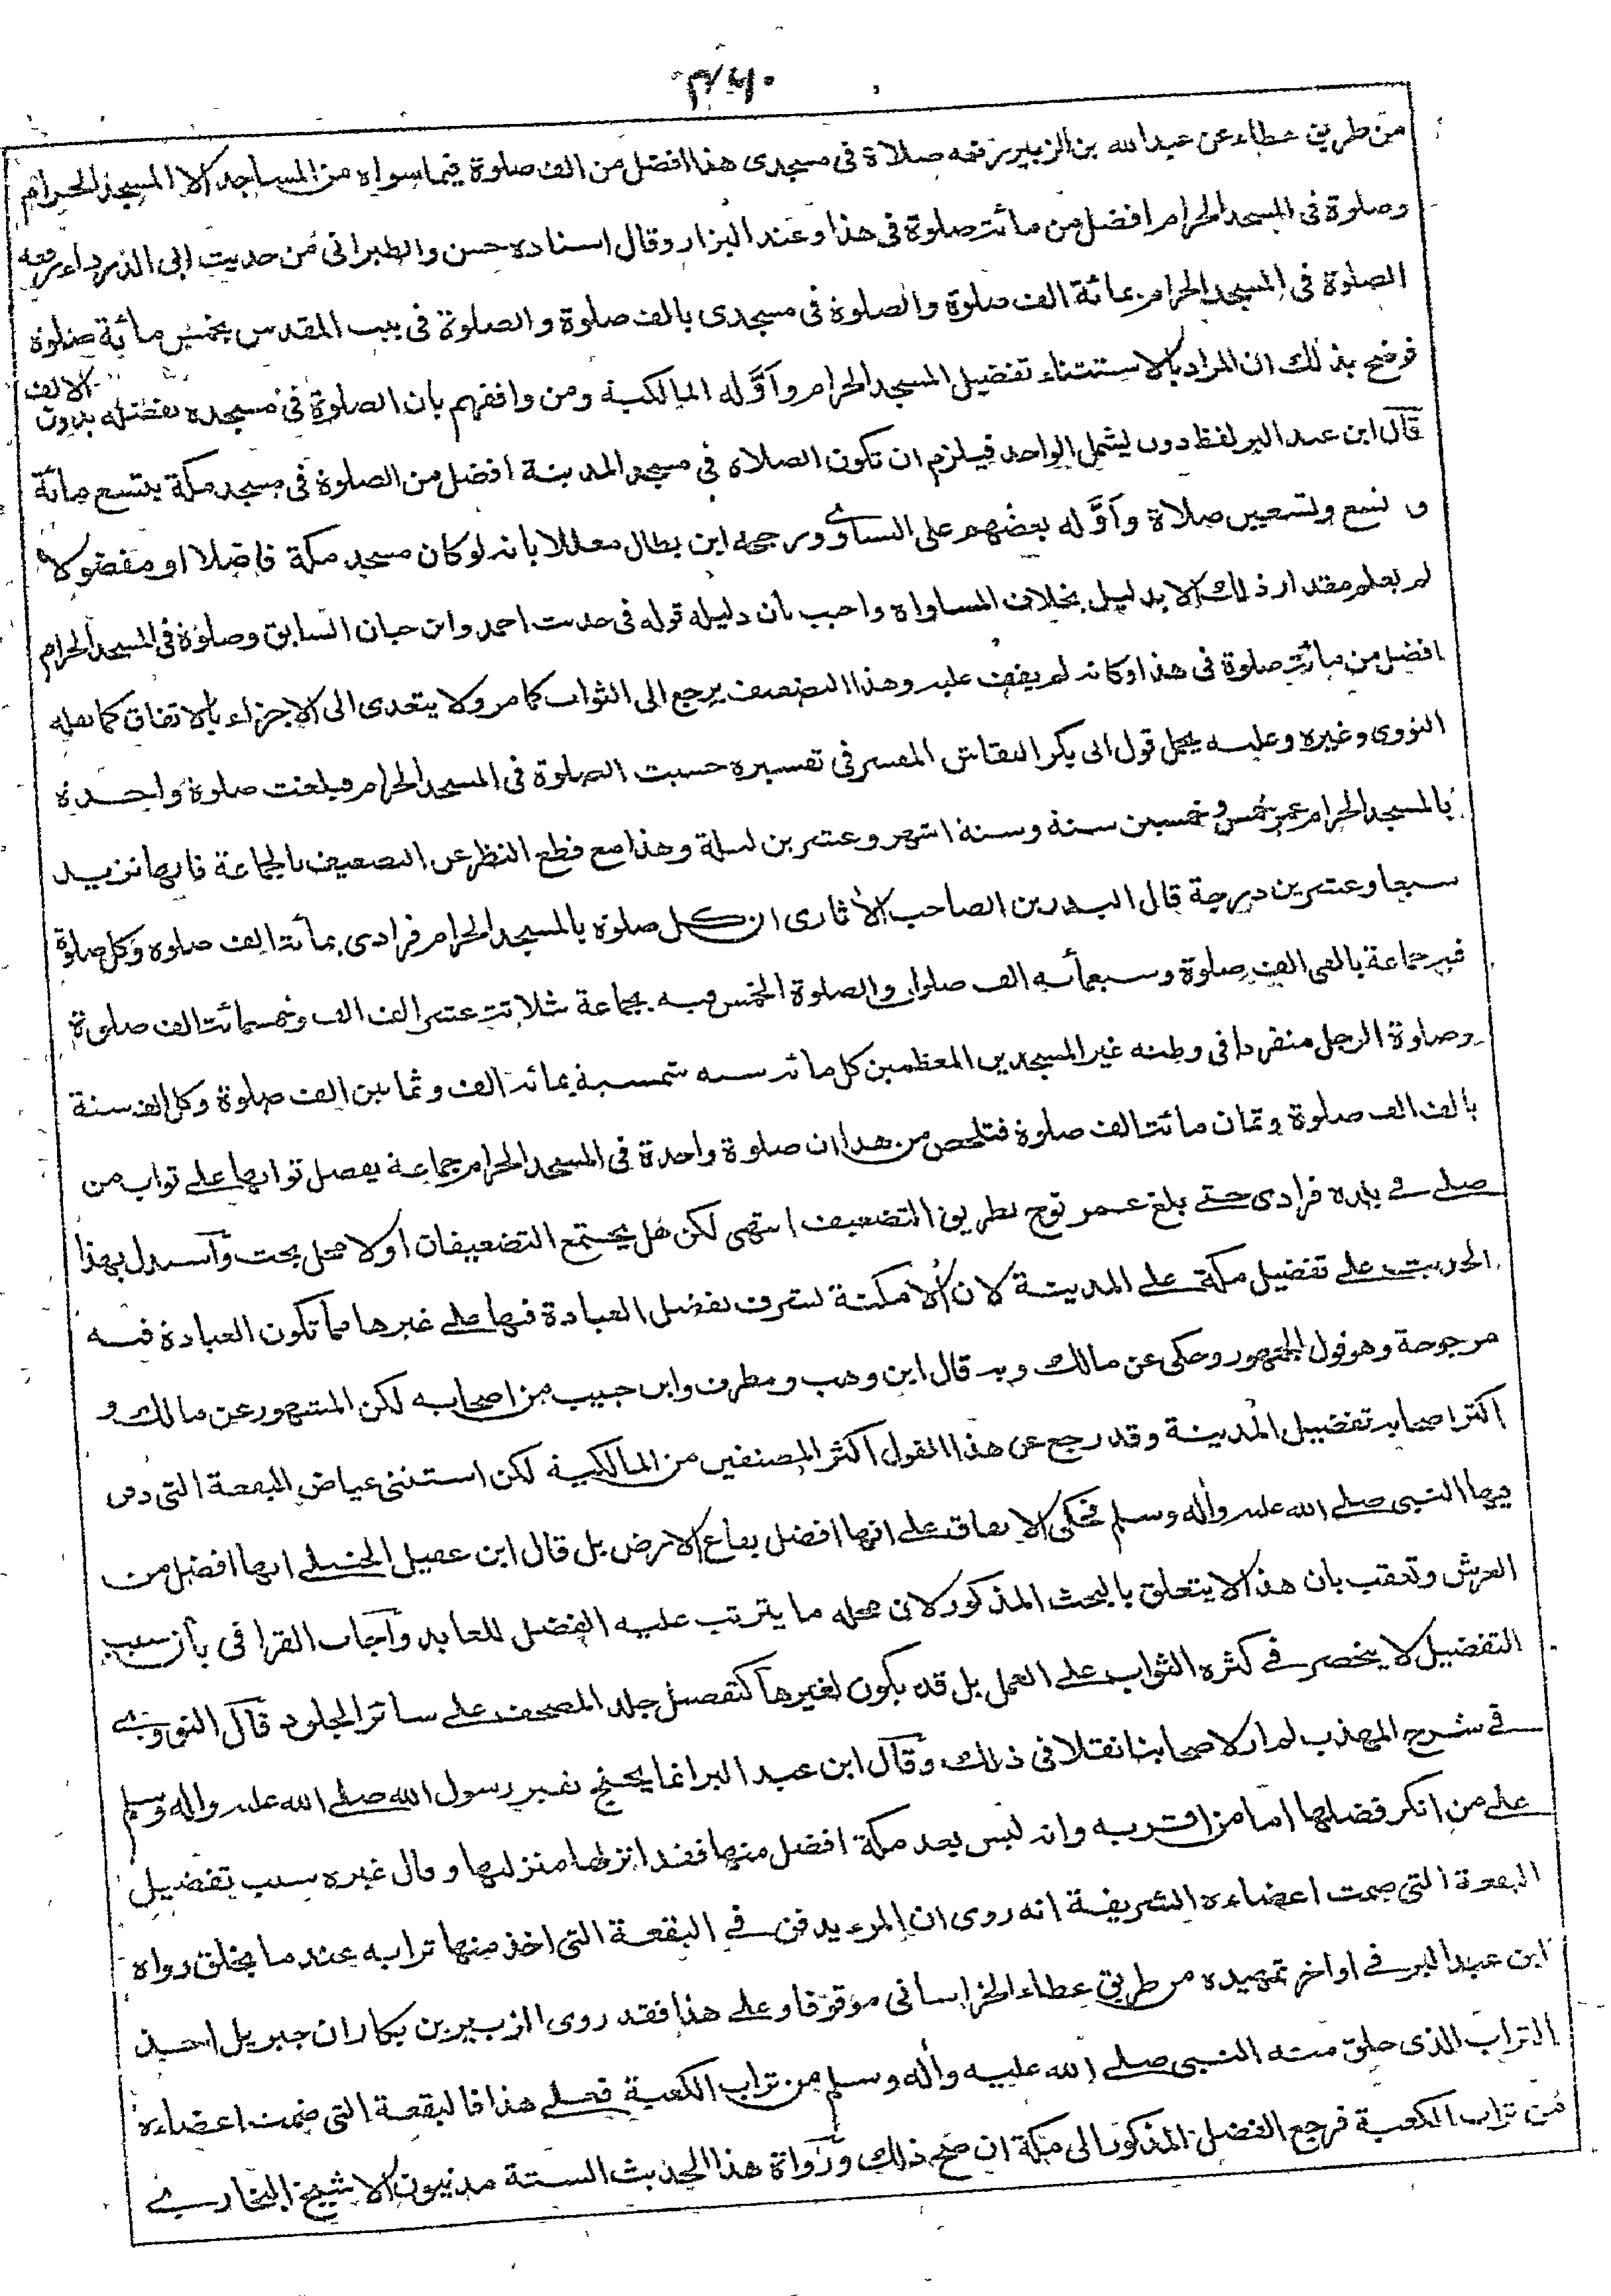 ٣٦٠
من طريق عطاء عن عبد الله بن الزبير رفعه صلاة فى مسجدى هذا افضل من الف صلوة فيما سواه من المساجد الا المسجد الحرام
وصلوة فى المسجد الحرام افضل من مائة صلوة فى هذا وعند البزار وقال اسناده حسن والطبرانى من حديث ابى الدرداء رفعه
الصلوة فى المسجد الحرام بمائة الف صلوة والصلوة فى مسجدى بالف صلوة والصلوة فى بيت المقدس بخمس مائة صلوة
فوضح بذلك ان المراد بالاستثناء تفضيل المسجد الحرام واوَّله المالكية ومن وافقهم بان الصلوة فى مسجده تفضله بدون الالف
قال ابن عبد البر لفظ دون يشمل الواحد فيلزم ان تكون الصلاة فى مسجد المدينة افضل من الصلوة فى مسجد مكة بتسع مائة
و تسع وتسعين صلاة واوَّله بعضهم على التساوى ورجحه ابن بطال معللا بانه لو كان مسجد مكة فاضلا او مفضولا
لم يعلم مقدار ذلك الا بدليل بخلاف المساواة واجيب بان دليله قوله فى حديث احمد وابن حبان السابق وصلوة فى المسجد الحرام
افضل من مائة صلوة فى هذا وكانه لم يقف عليه وهذا التضعيف يرجع الى الثواب كما مر ولا يتعدى الى الاجزاء بالاتفاق كما نقله
النووى وغيره وعليه يحمل قول ابى بكر النقاش المفسر فى تفسيره حسبت الصلوة فى المسجد الحرام فبلغت صلوة واحدة
بالمسجد الحرام عمر خمس وخمسين سنة وستة اشهر وعشرين ليلة وهذا مع قطع النظر عن التضعيف بالجماعة فانها تزيد
سبعا وعشرين درجة قال البدر بن الصاحب الأثارى ان كل صلوة بالمسجد الحرام فرادى بمائة الف صلوة وكل صلوة
فيه جماعة بالفى الف صلوة وسبعمائة الف صلوات والصلوة الخمس فيه بجماعة بثلاثة عشر الف الف وخمسمائة الف صلوة
وصلوة الرجل منفردا فى وطنه غير المسجدين المعظمين كل مائة سنة شمسية بمائة الف وثمانين الف صلوة وكل الف سنة
بالف الف صلوة وثمان مائة الف صلوة فتلخص من هذا ان صلوة واحدة فى المسجد الحرام جماعة يفضل ثوابها على ثواب من
صلى فى بلده فرادى حتى بلغ عمر نوح بطريق التضعيف انتهى لكن هل يجتمع التضعيفان او لا محل بحث واستدل بهذا
الحديث على تفضيل مكة على المدينة لان الامكنة تشرف بفضل العبادة فيها على غيرها مما تكون العبادة فيه
مرجوحة وهو قول الجمهور وحكى عن مالك وبه قال ابن وهب ومطرف وابن حبيب من اصحابه لكن المشهور عن مالك و
اكثر اصحابه تفضيل المدينة وقد رجع عن هذا القول اكثر المصنفين من المالكية لكن استثنى عياض البقعة التى دفن
فيها النبى صلى الله عليه وأله وسلم فحكى الاتفاق على انها افضل بقاع الارض بل قال ابن عقيل الحنبلى انها افضل من
العرش وتعقب بان هذا لا يتعلق بالبحث المذكور لان محله ما يترتب عليه الفضل للعابد واجاب القرافى بأن سبب
التفضيل لا ينحصر فى كثرة الثواب على العمل بل قد يكون لغيرها كتفضيل جلد المصحف على سائر الجلود قال النووى
فى شرح المهذب لم ار لاصحابنا نقلا فى ذلك وقال ابن عبد البر انما يحتج بقبر رسول الله صلى الله عليه واله وسلم
على من انكر فضلها اما من اقر به وانه ليس بعد مكة افضل منها فقد انزلها منزلتها وقال غيره سبب تفضيل
البقعة التى ضمت اعضاءه الشريفة انه روى ان المرء يدفن فى البقعة التى اخذ منها ترابه عند ما يخلق رواه
ابن عبد البر فى اواخر تمهيده من طريق عطاء الخراسانى موقوفا وعلى هذا فقد روى الزبير بن بكار ان جبريل اخذ
التراب الذى خلق منه النبى صلى الله عليه وأله وسلم من تراب الكعبة فعلى هذا فالبقعة التى ضمت اعضاءه
من تراب الكعبة فرجع الفضل المذكور الى مكة ان صح ذلك ورواة هذا الحديث الستة مدنيون الا شيخ البخارى